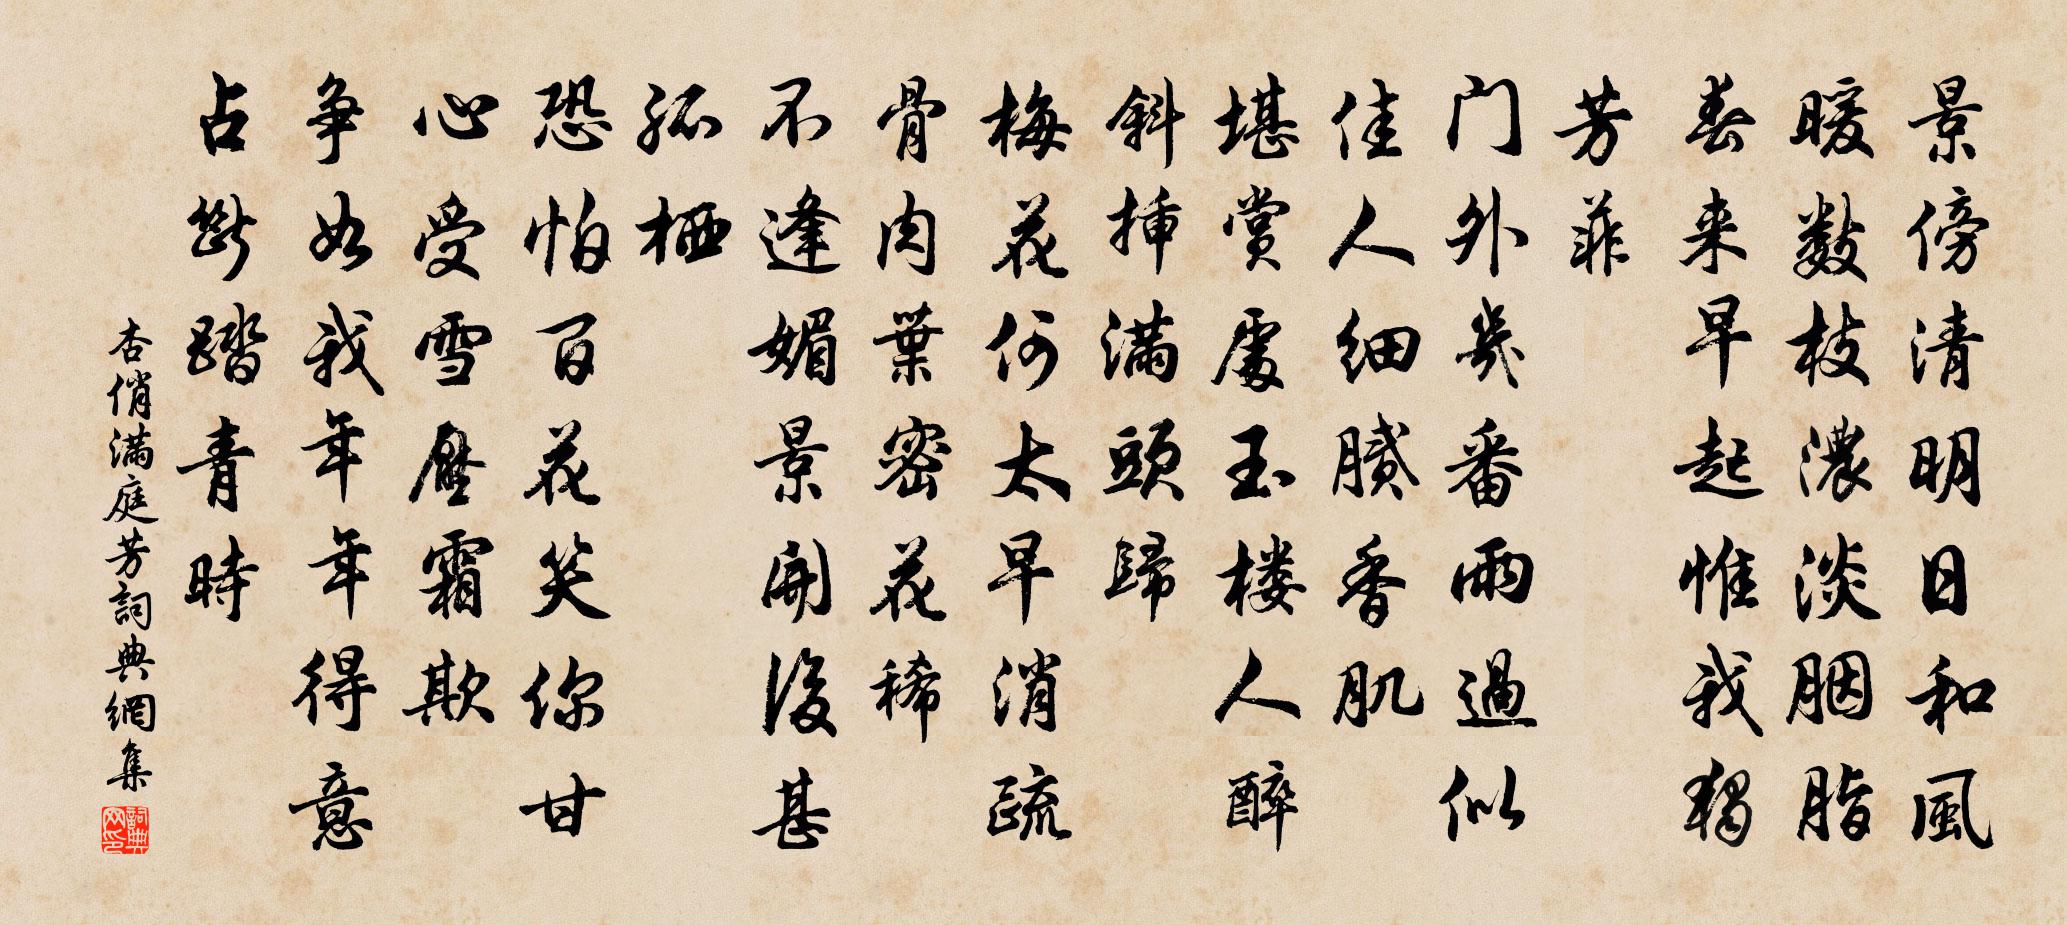 景傍清明日和風
暖數枝濃淡胭脂
春来早起惟我獨
芳菲
门外幾番雨過似
佳人細膩香肌
堪賞處玉楼人醉
斜插满頭歸
梅花何太早消疏
骨肉葉密花稀
不逢媚景開後甚
孤栖
恐怕百花笑你甘
心受雪壓霜欺
争如我年年得意
占斷踏青時
杏俏满庭芳詞典網集
詞典網印